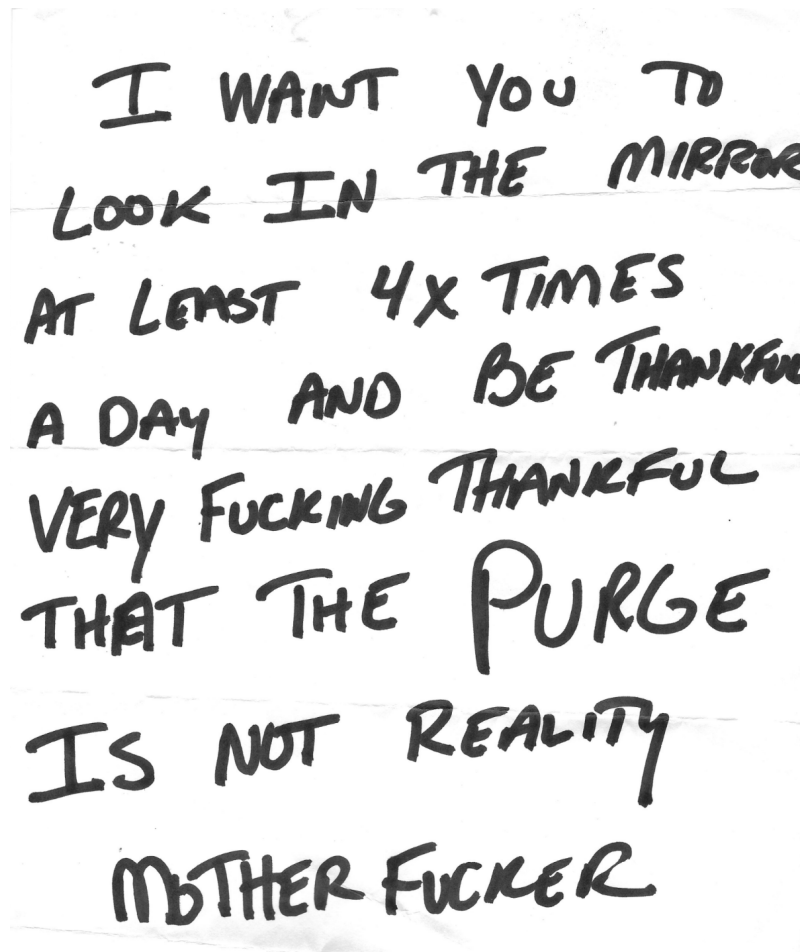 I WANT YOU TO
LOOK IN THE MIRROR
AT LEAST 4X TIMES
A DAY AND BE THANKFUL
VERY FUCKING THANKFUL
THAT THE PURGE
IS NOT REALITY
MOTHER FUCKER